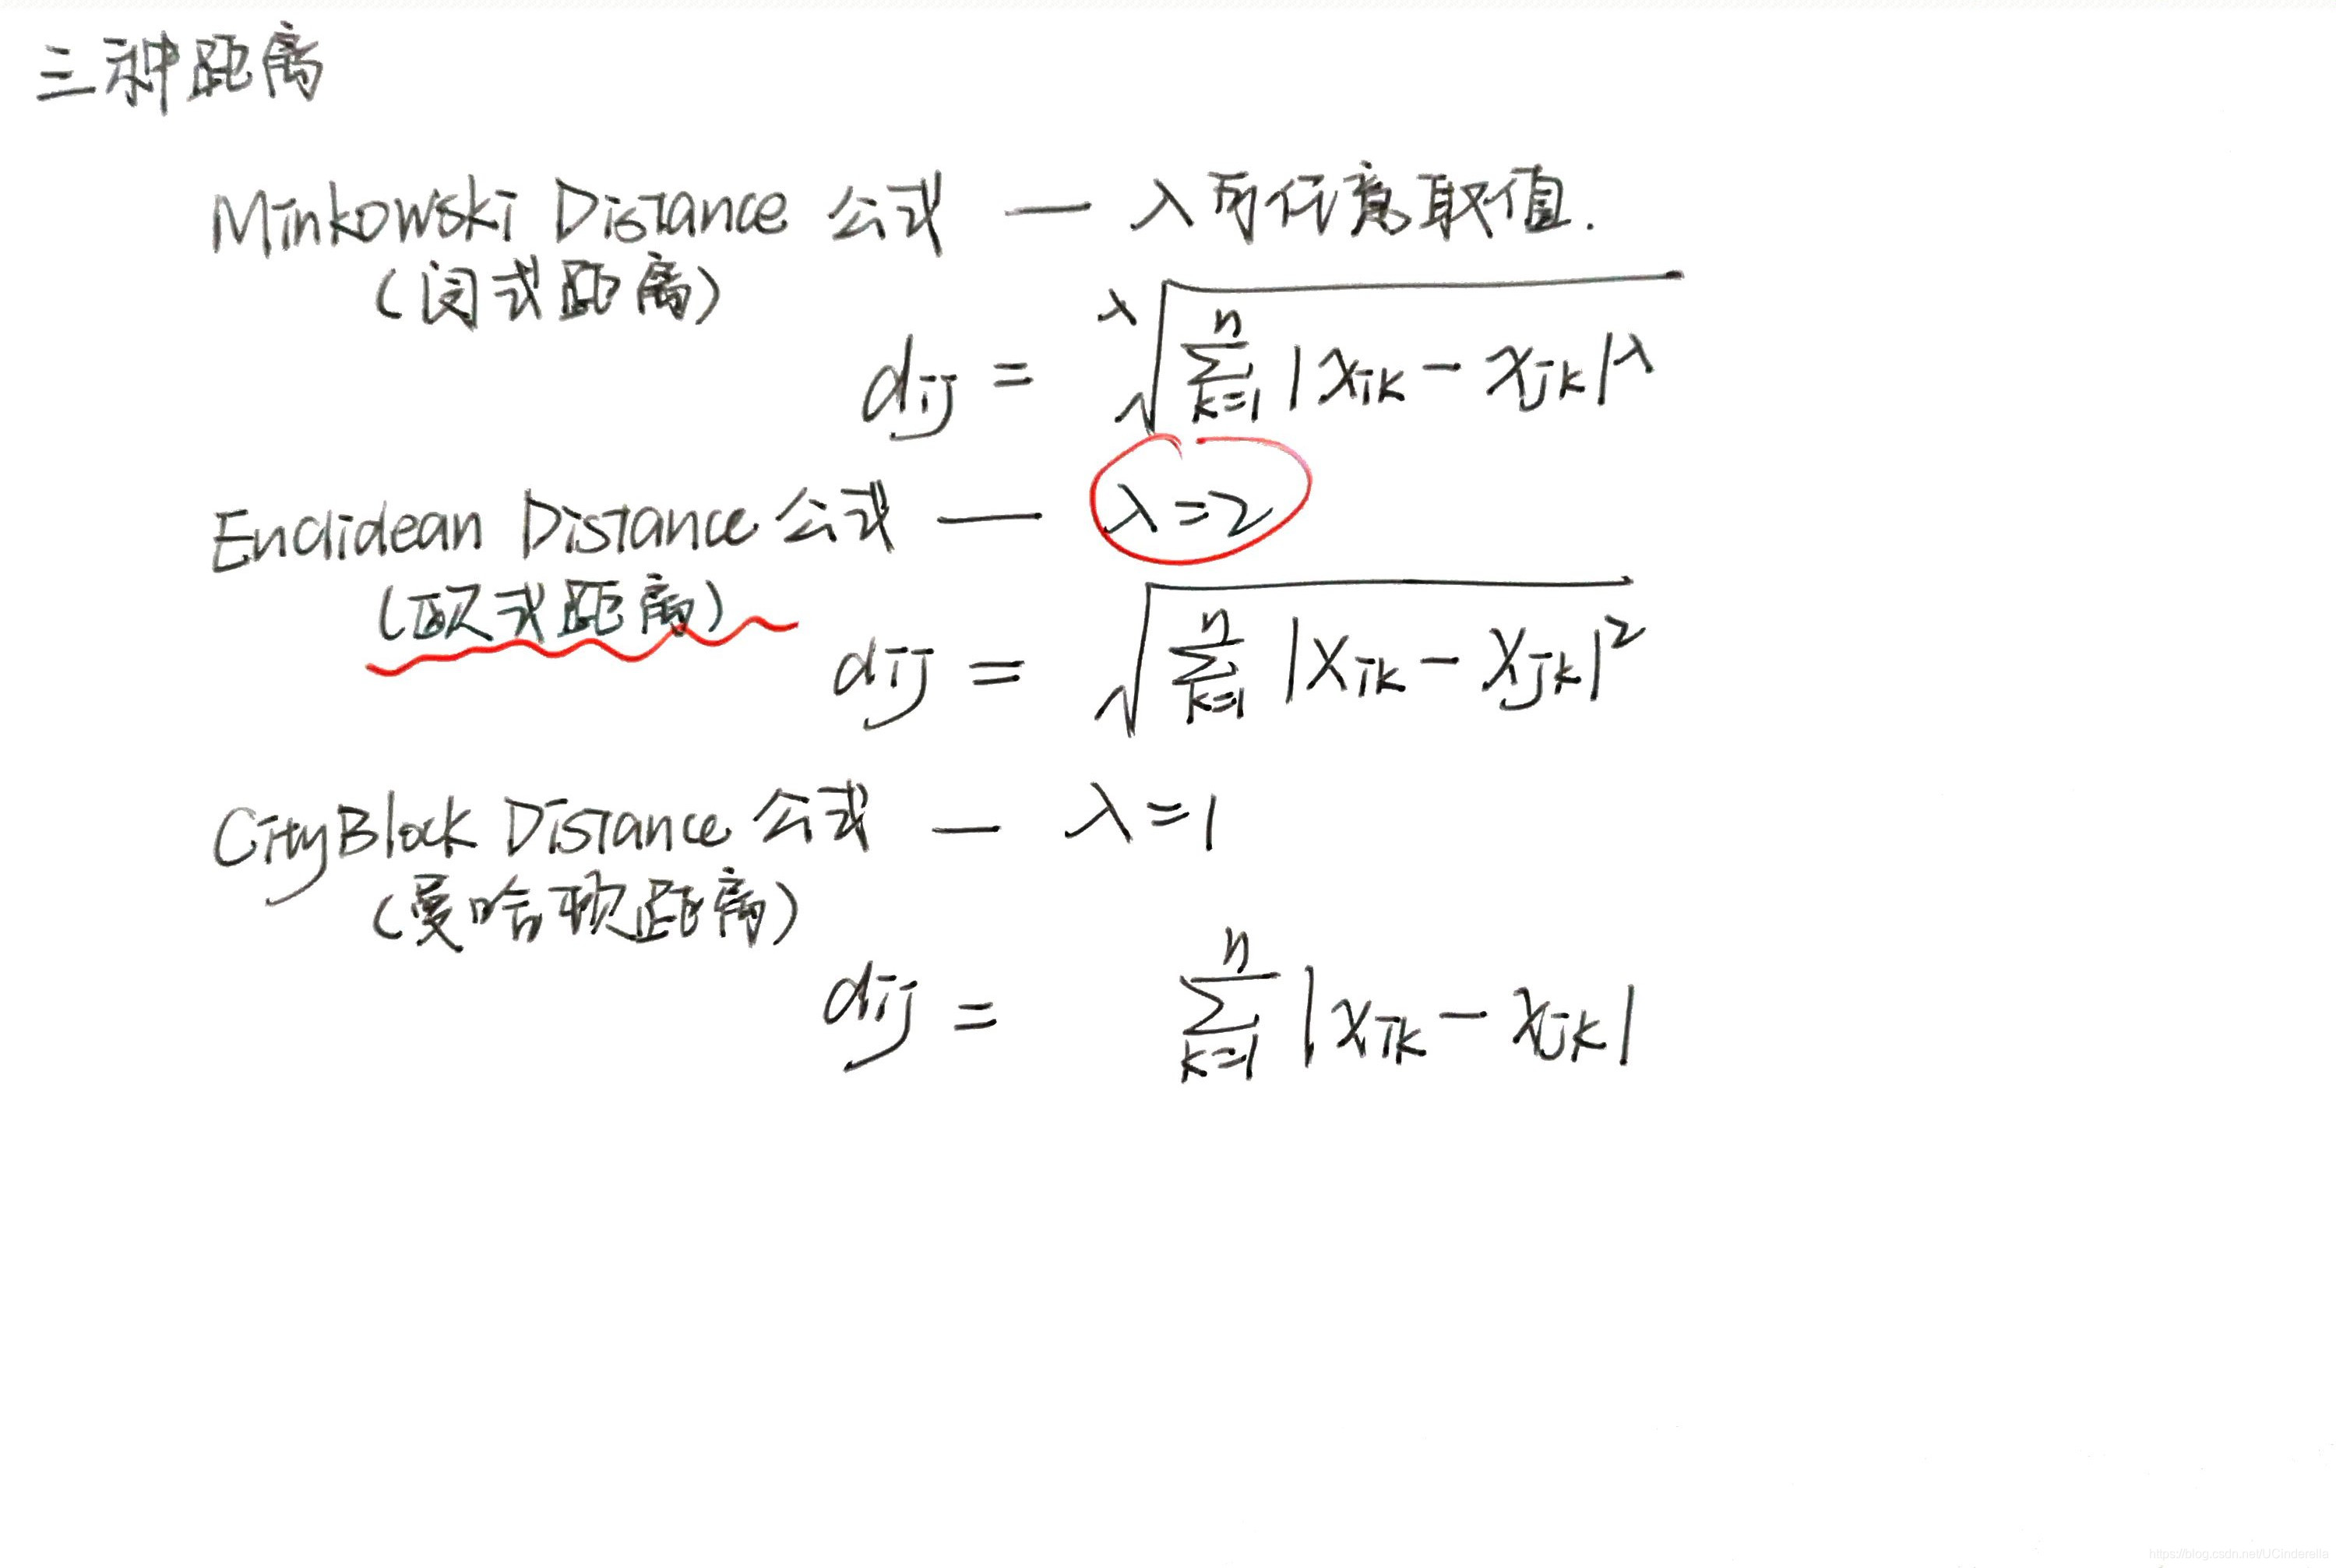 三种距离
Minkowski Distance 公式 — λ可任意取值.
(闵式距离)
dij = λ√ n∑k=1 |xik - xjk|λ
Euclidean Distance 公式 — λ=2
(欧式距离)
dij = √ n∑k=1 |xik - xjk|²
CityBlock Distance 公式 — λ=1
(曼哈顿距离)
dij = n∑k=1 |xik - xjk|
https://blog.csdn.net/UCinderella